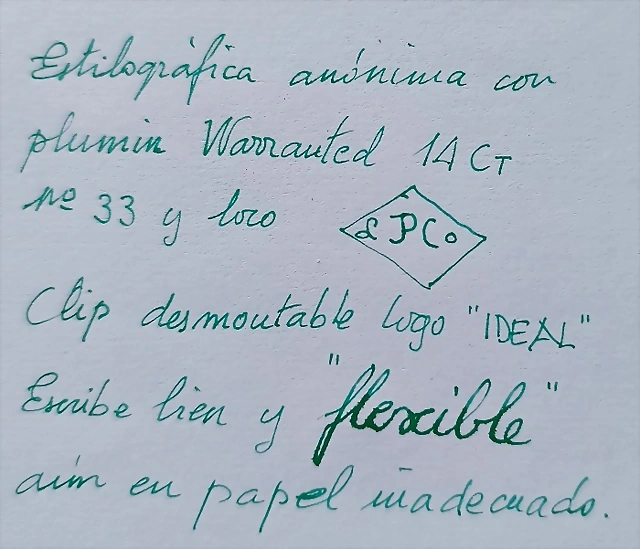 Estilográfica anónima con
plumin Warranted 14 CT
nº 33 y loco LPCo
Clip desmontable logo "IDEAL"
Escribe bien y "flexible"
aún en papel inadecuado.